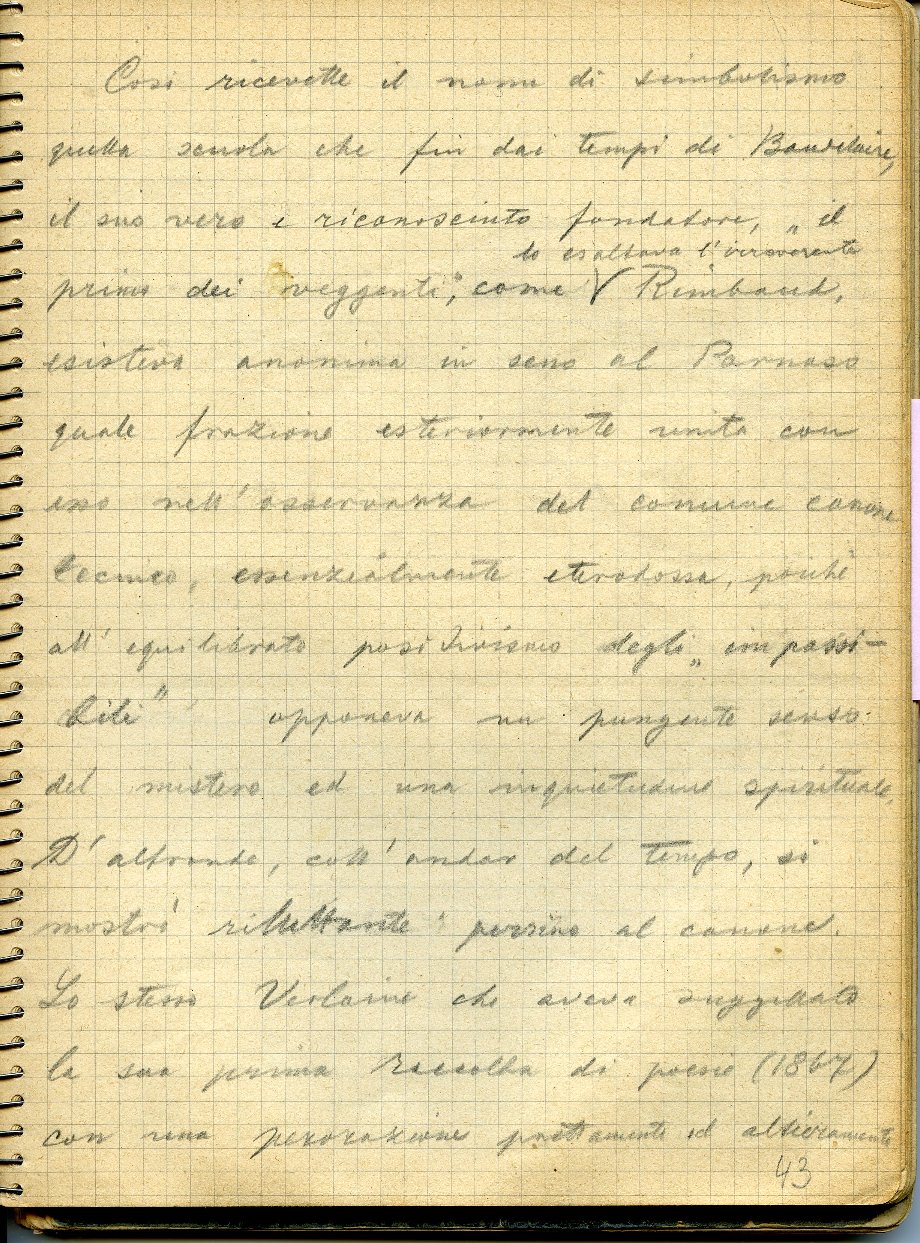 Così ricevette il nome di simbolismo
quella scuola che fin dai tempi di Baudelaire,
il suo vero e riconosciuto fondatore, „ il
lo esaltava l'irriverente
primo dei veggenti", come V Rimbaud,
esisteva anonima in seno al Parnaso
quale frazione esteriormente unita con
esso nell'osservanza del comune canone
tecnico, essenzialmente eterodossa, poiché
all'equilibrato positivismo degli „ impassi-
bili" opponeva un pungente senso
del mistero ed una inquietudine spirituale.
D'altronde, coll'andar del tempo, si
mostrò riluttante persino al canone.
Lo stesso Verlaine che aveva suggellato
la sua prima raccolta di poesie (1867)
con una perorazione prettamente ed altieramente
43